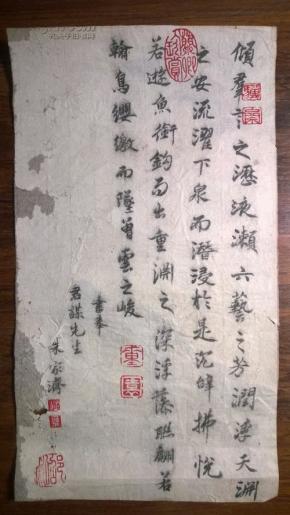 傾群言之瀝液漱六藝之芳潤浮天淵
之安流濯下泉而潛浸於是沉辭拂悅
若遊魚銜鈎而出重淵之深浮藻聯翩若
翰鳥纓繳而墜曾雲之峻
書奉
君謀先生
朱家濟